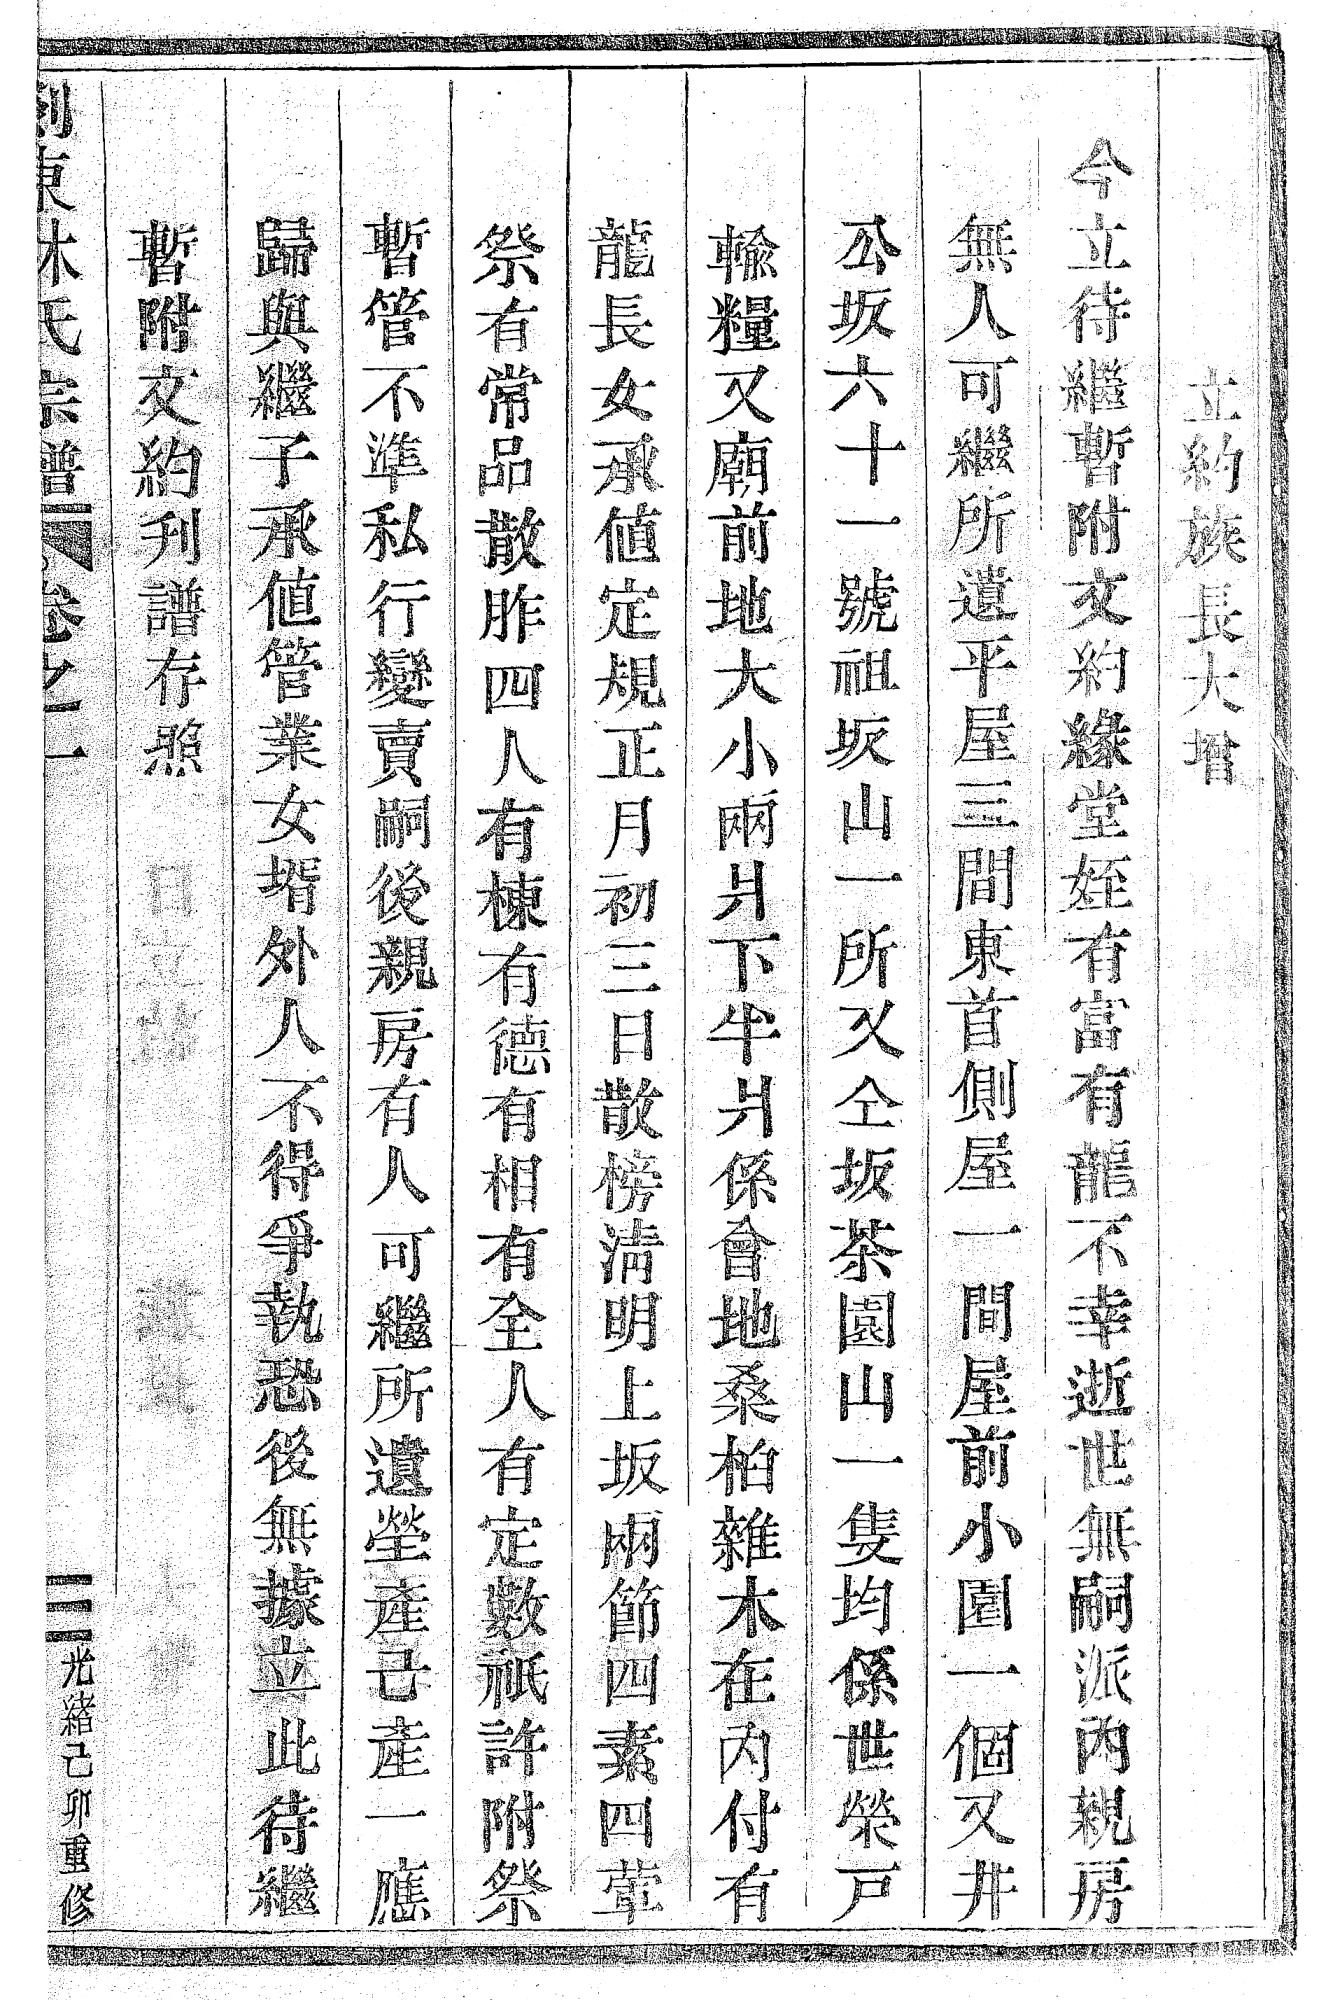 立約族長大增
今立待繼暫附文約緣堂姪有富有龍不幸逝世無嗣派內親房
無人可繼所遺平屋三間東首側屋一間屋前小園一個又井
公坂六十一號祖坂山一所又仝坂茶園山一隻均係世榮戶
輸糧又廟前地大小兩爿下半爿係會地桑柏雜木在內付有
龍長女承值定規正月初三日散榜淸明上坂兩節四素四葷
祭有常品散胙四人有棟有德有相有全人有定數祇許附祭
暫管不準私行變賣嗣後親房有人可繼所遺塋產己產一應
歸與繼子承值管業女壻外人不得爭執恐後無據立此待繼
暫附文約刋譜存照
剡東木氏宗譜 卷之一 三 光緒己卯重修